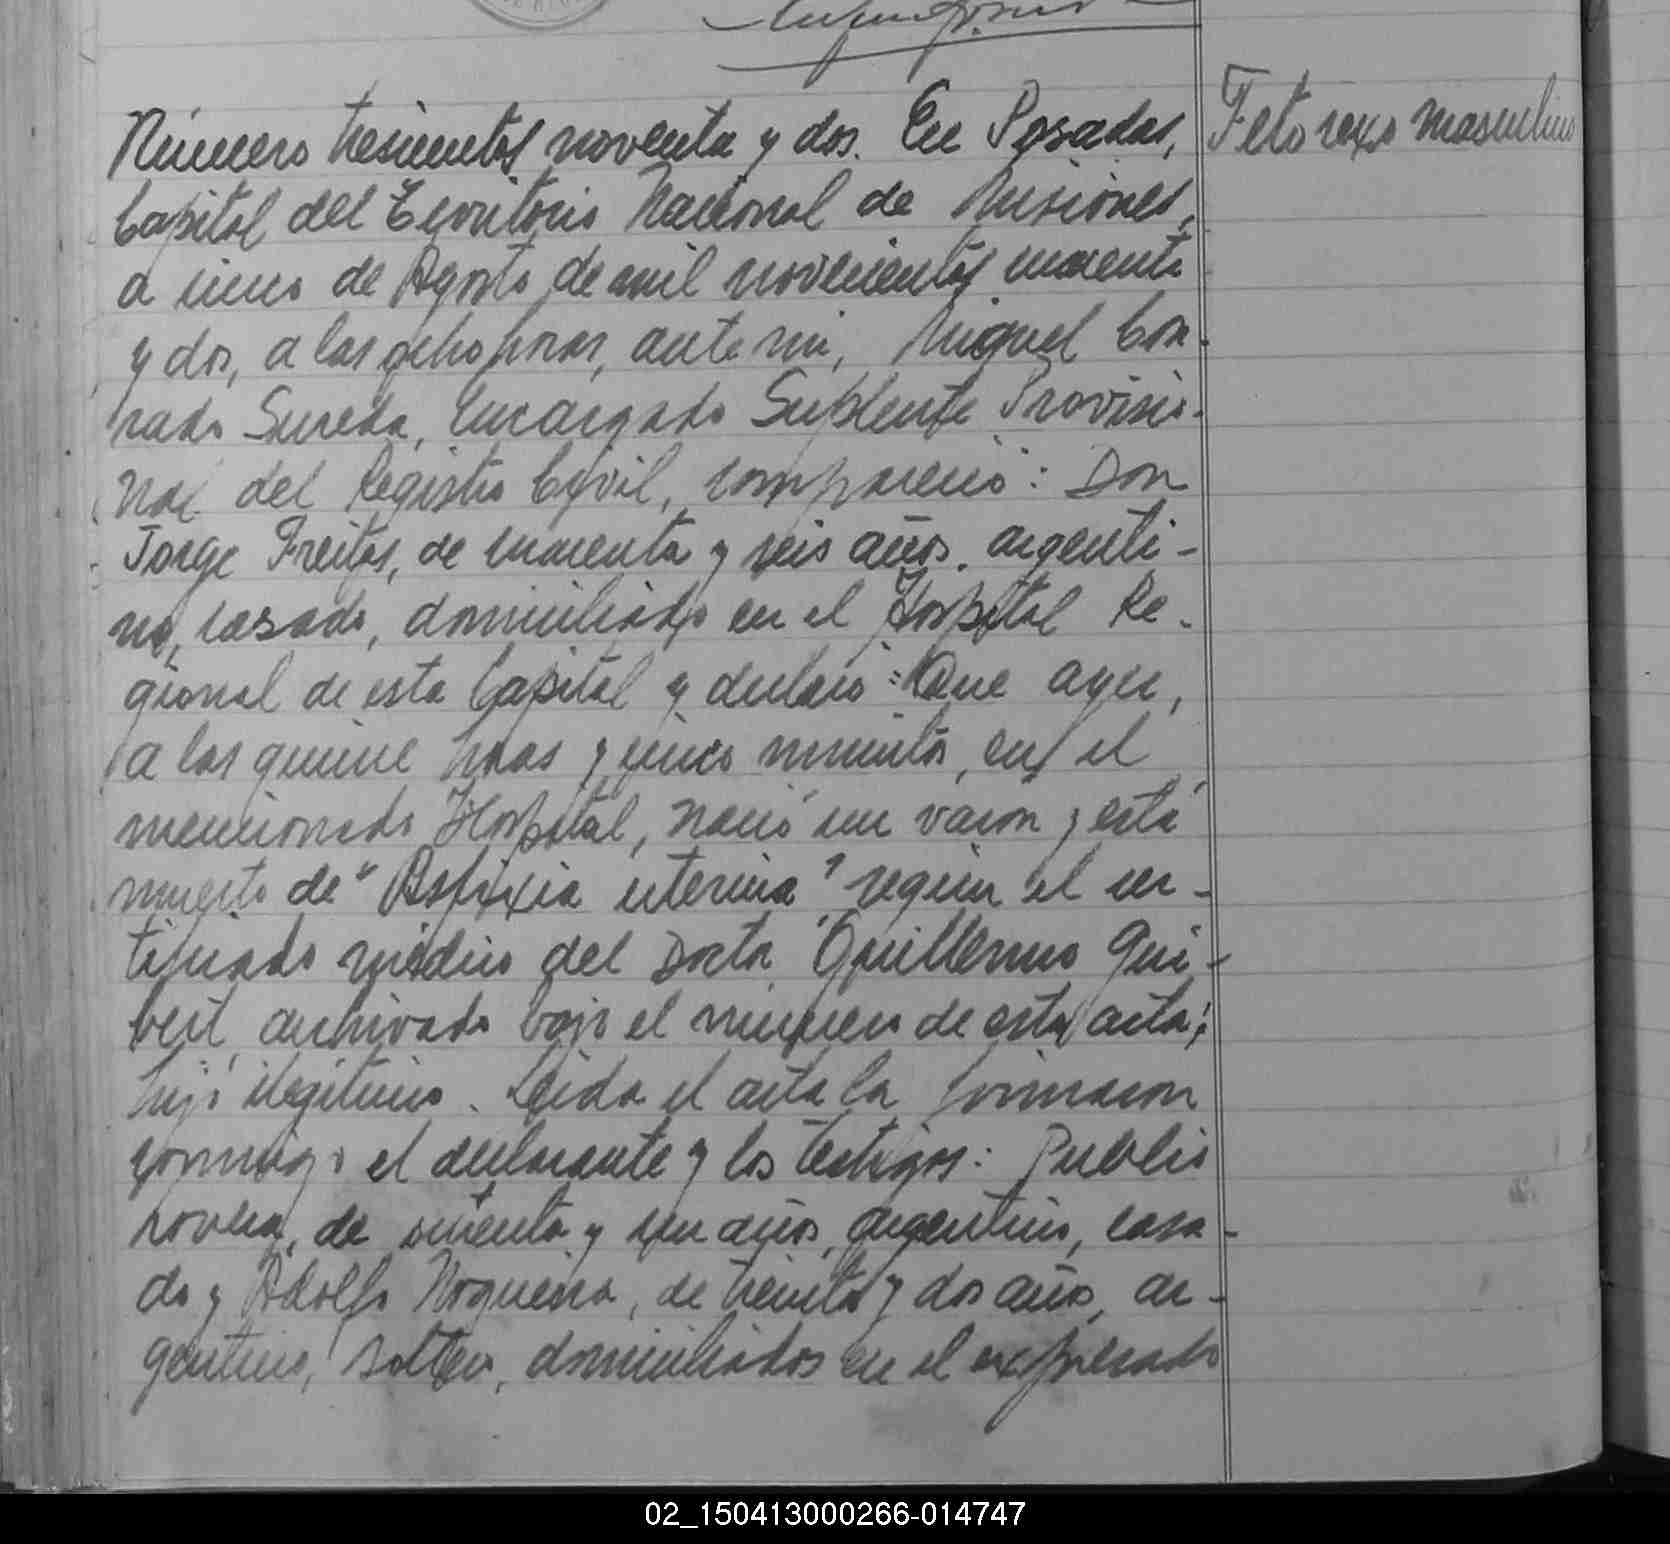 Número trescientos noventa y dos. En Posadas,
Feto sexo masculino
Capital del Territorio Nacional de Misiones,
a cinco de Agosto de mil novecientos cuarenta
y dos, a las ocho horas, ante mi, Miguel Con-
rado Sureda, Encargado Suplente Provisio-
nal del Registro Civil, compareció: Don
Jorge Freitas, de cuarenta y seis años, argenti-
no, casado, domiciliado en el Hospital Re-
gional de esta Capital y declaró: Que ayer,
a las quince horas y cinco minutos, en el
mencionado Hospital, nació un varón y está
muerto de "Asfixia uterina" según el cer-
tificado médico del Doctor Guillermo Gui-
bert, archivado bajo el número de esta acta;
hijo ilegítimo. Leída el acta la firmaron
conmigo el declarante y los testigos: Publio
de y un años, argentino, casa-
do y Adolfo Nogueira, de treinta y dos años, ar-
gentino, soltero, domiciliados en el expresado
02_150413000266-014747